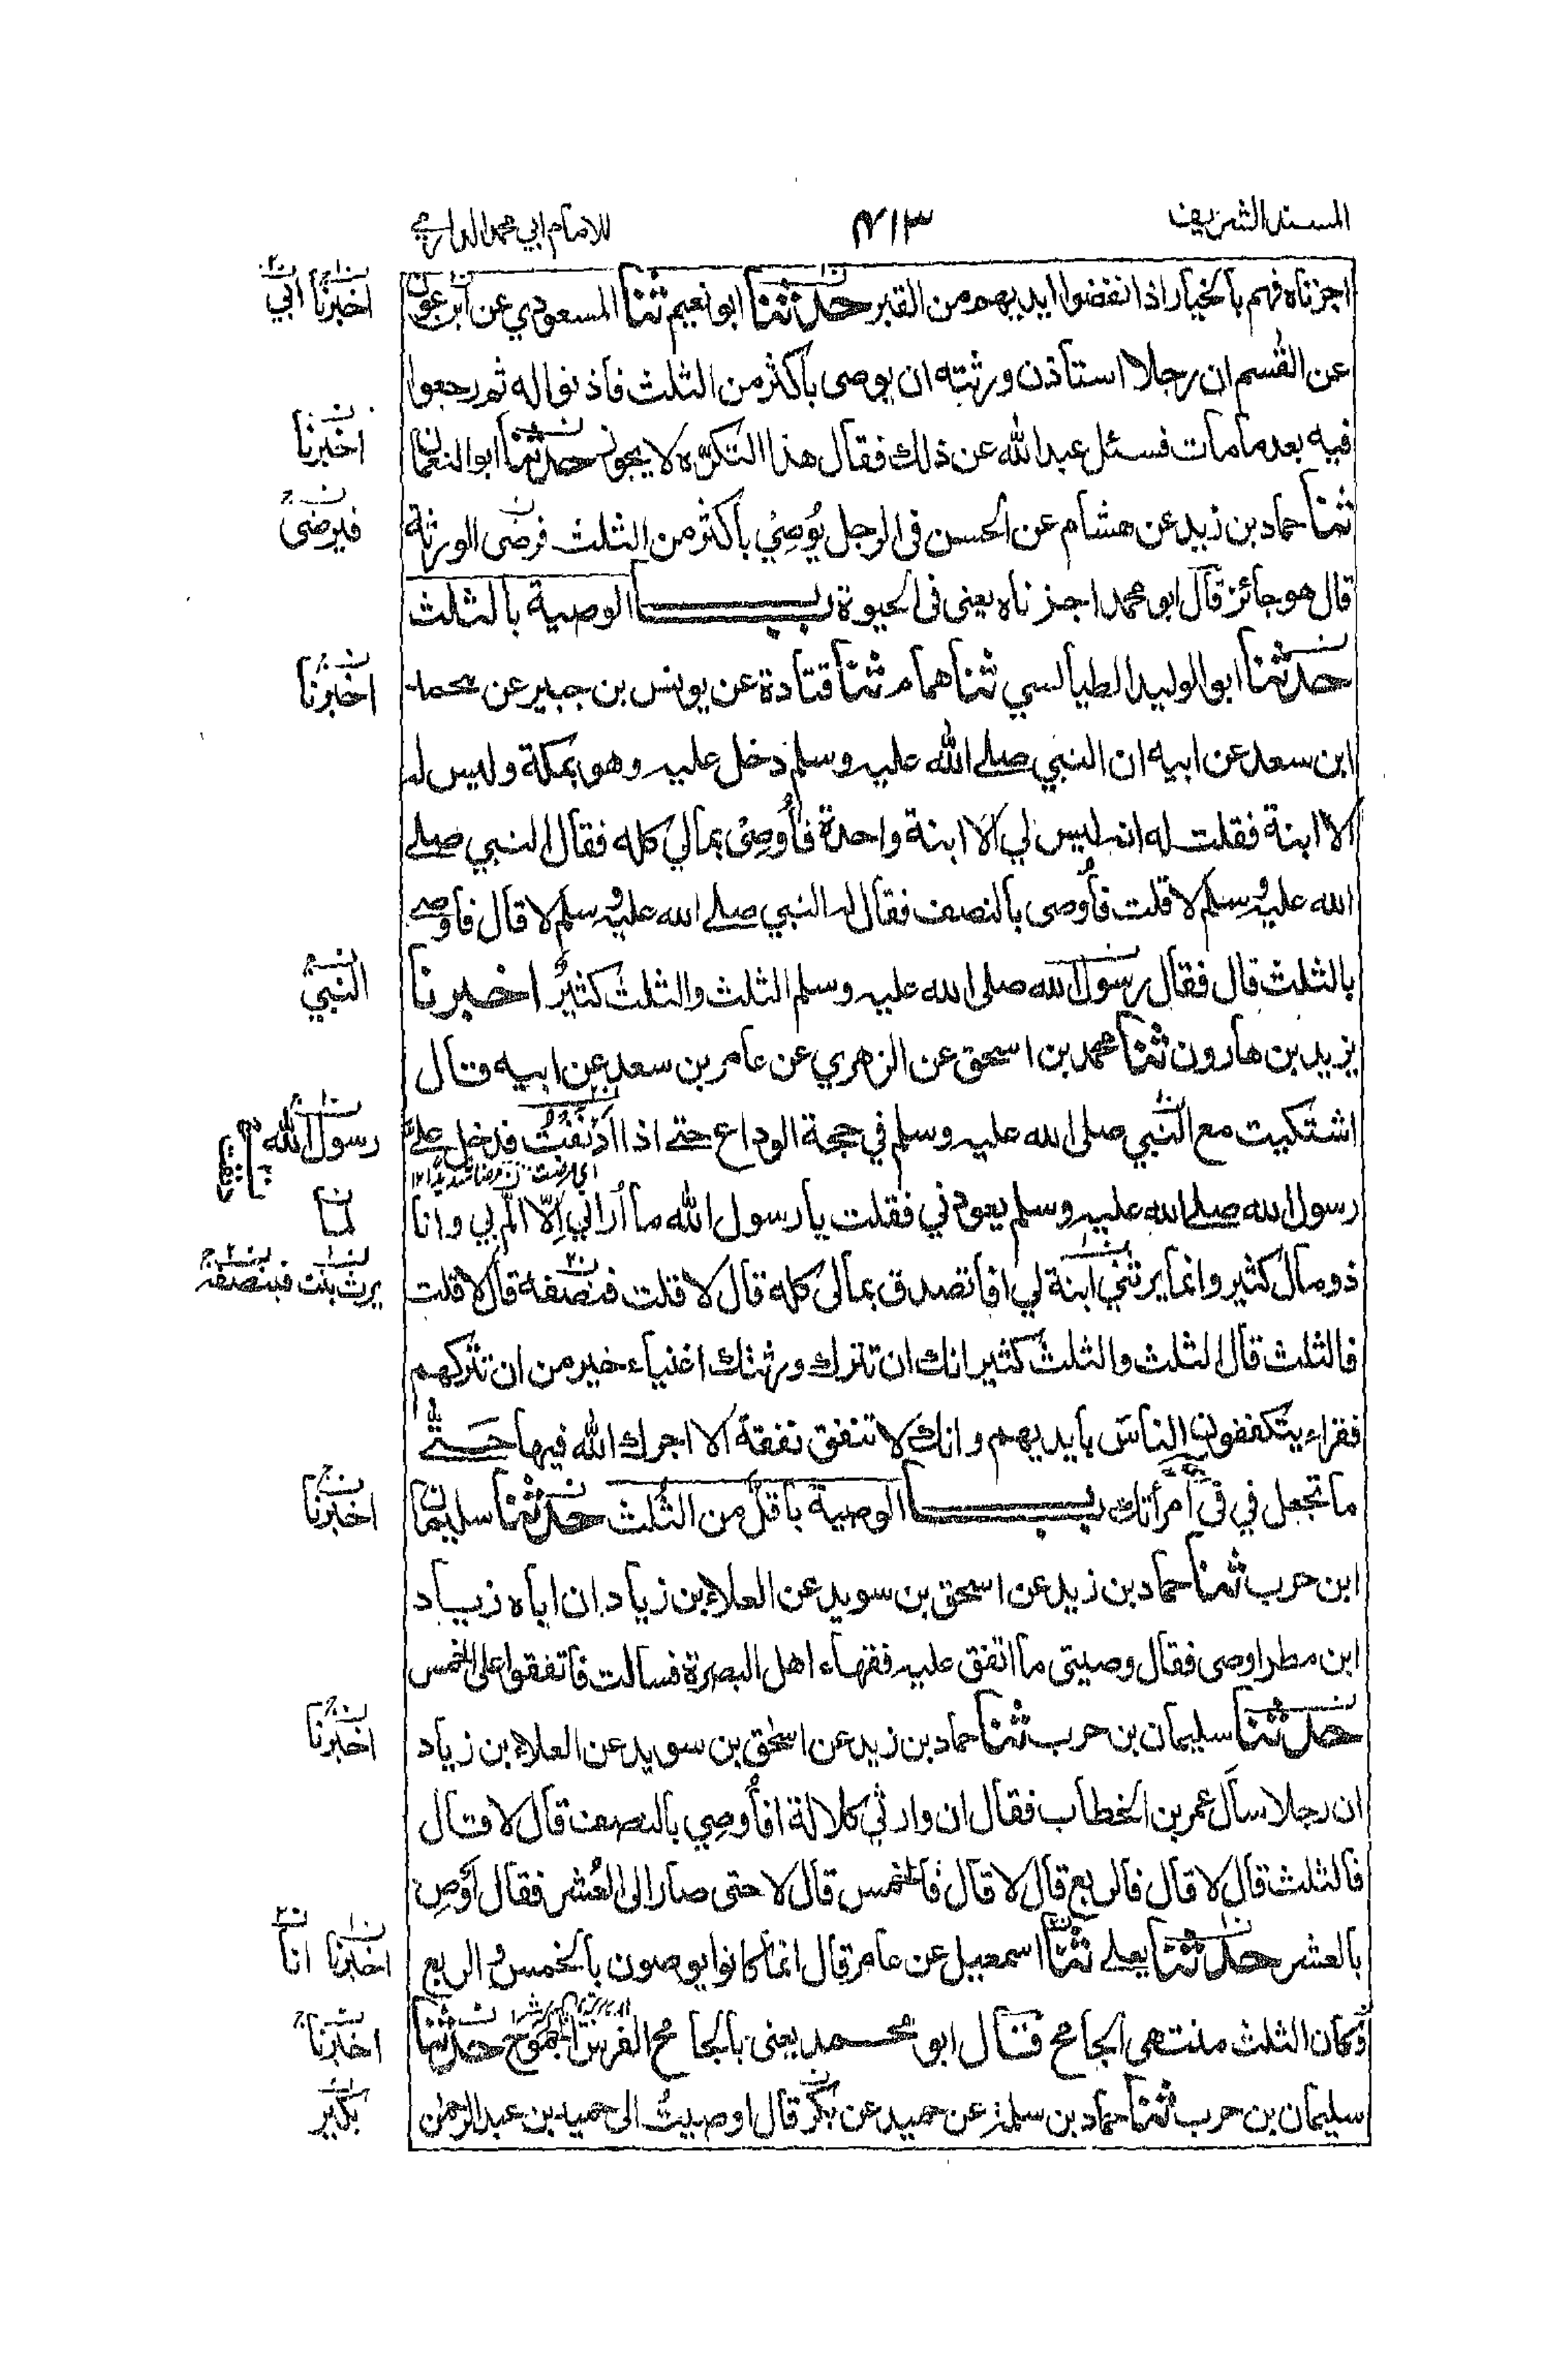 المسند الشريف ٤١٣ للامام ابي محمد الدارمي
اجزناه فهم بالخيار اذا نفضوا ايديهم من القبر حدثنا ابو نعيم ثنا المسعودي عن ابن عون
اخبرنا ابي
عن القسم ان رجلا استاذن ورثته ان يوصى باكثر من الثلث فاذنوا له ثم رجعوا
فيه بعد ما مات فسئل عبد الله عن ذلك فقال هذا التكرّه لا يجوز حدثنا ابو النعمان
اخبرنا
ثنا حماد بن زيد عن هشام عن الحسن فى الرجل يُوصِيْ باكثر من الثلث فرضى الورثة
فيرضى
قال هو جائز قال ابو محمد اجزناه يعنى فى الحيوة باب الوصية بالثلث
حدثنا ابو الوليد الطيالسي ثنا همام ثنا قتادة عن يونس بن جبير عن محمد
اخبرنا
ابن سعد عن ابيه ان النبي صلے الله عليه وسلم دخل عليه وهو بمكة وليس له
الا ابنة فقلت له انه ليس لي الا ابنة واحدة فأُوصِىْ بمالي كله فقال النبي صلے
الله عليه وسلم لا قلت فأُوصى بالنصف فقال له النبي صلے الله عليه وسلم لا قال فاوصے
بالثلث قال فقال رسول الله صلى الله عليه وسلم الثلث والثلث كثيرٌ اخبرنا
النبي
يزيد بن هارون ثنا محمد بن اسحق عن الزهري عن عامر بن سعد عن ابيه قال
اشتكيت مع النبي صلى الله عليه وسلم في حجة الوداع حتے اذا ادنفت فدخل علے
رسول الله
رسول الله صلے الله عليه وسلم يعودني فقلت يا رسول الله ما أُراني اِلّا الم بي وانا
لما
ذو مال كثير وانما يرثني ابنة لي افاتصدق بمالى كله قال لا قلت فنصفه قال لا قلت
يرث بنت فبنصفه
فالثلث قال الثلث والثلث كثير انك ان تترك ورثتك اغنياء خير من ان تتركهم
فقراء يتكففون الناسَ بايديهم وانك لا تنفق نفقة الا اجرك الله فيها حَتّٰے
ما تجعل في في امرأتك باب الوصية باقل من الثلث حدثنا سليمان
اخبرنا
ابن حرب ثنا حماد بن زيد عن اسحق بن سويد عن العلاء بن زياد ان اباه زياد
ابن مطر اوصى فقال وصيتى ما اتفق عليه فقهاء اهل البصرة فسالت فاتفقوا على الخمس
حدثنا سليمان بن حرب ثنا حماد بن زيد عن اسحٰق بن سويد عن العلاء بن زياد
اخبرنا
ان رجلا سأَل عمر بن الخطاب فقال ان وارثي كلالة افأُوصِي بالنصف قال لا قال
فالثلث قال لا قال فالربع قال لا قال فالخمس قال لا حتى صار الى العُشر فقال أوصِ
بالعشر حدثنا يعلے ثنا اسمعيل عن عامر قال انما كانوا يوصون بالخمس والربع
اخبرنا انا
وكان الثلث منتهى الجامح قال ابو محمد يعنى بالجامح الفرس الجموح حدثنا
اخبرنا
سليمان بن حرب ثنا حماد بن سلمة عن حميد عن بكر قال اوصيتُ الى حميد بن عبد الرحمٰن
بكير